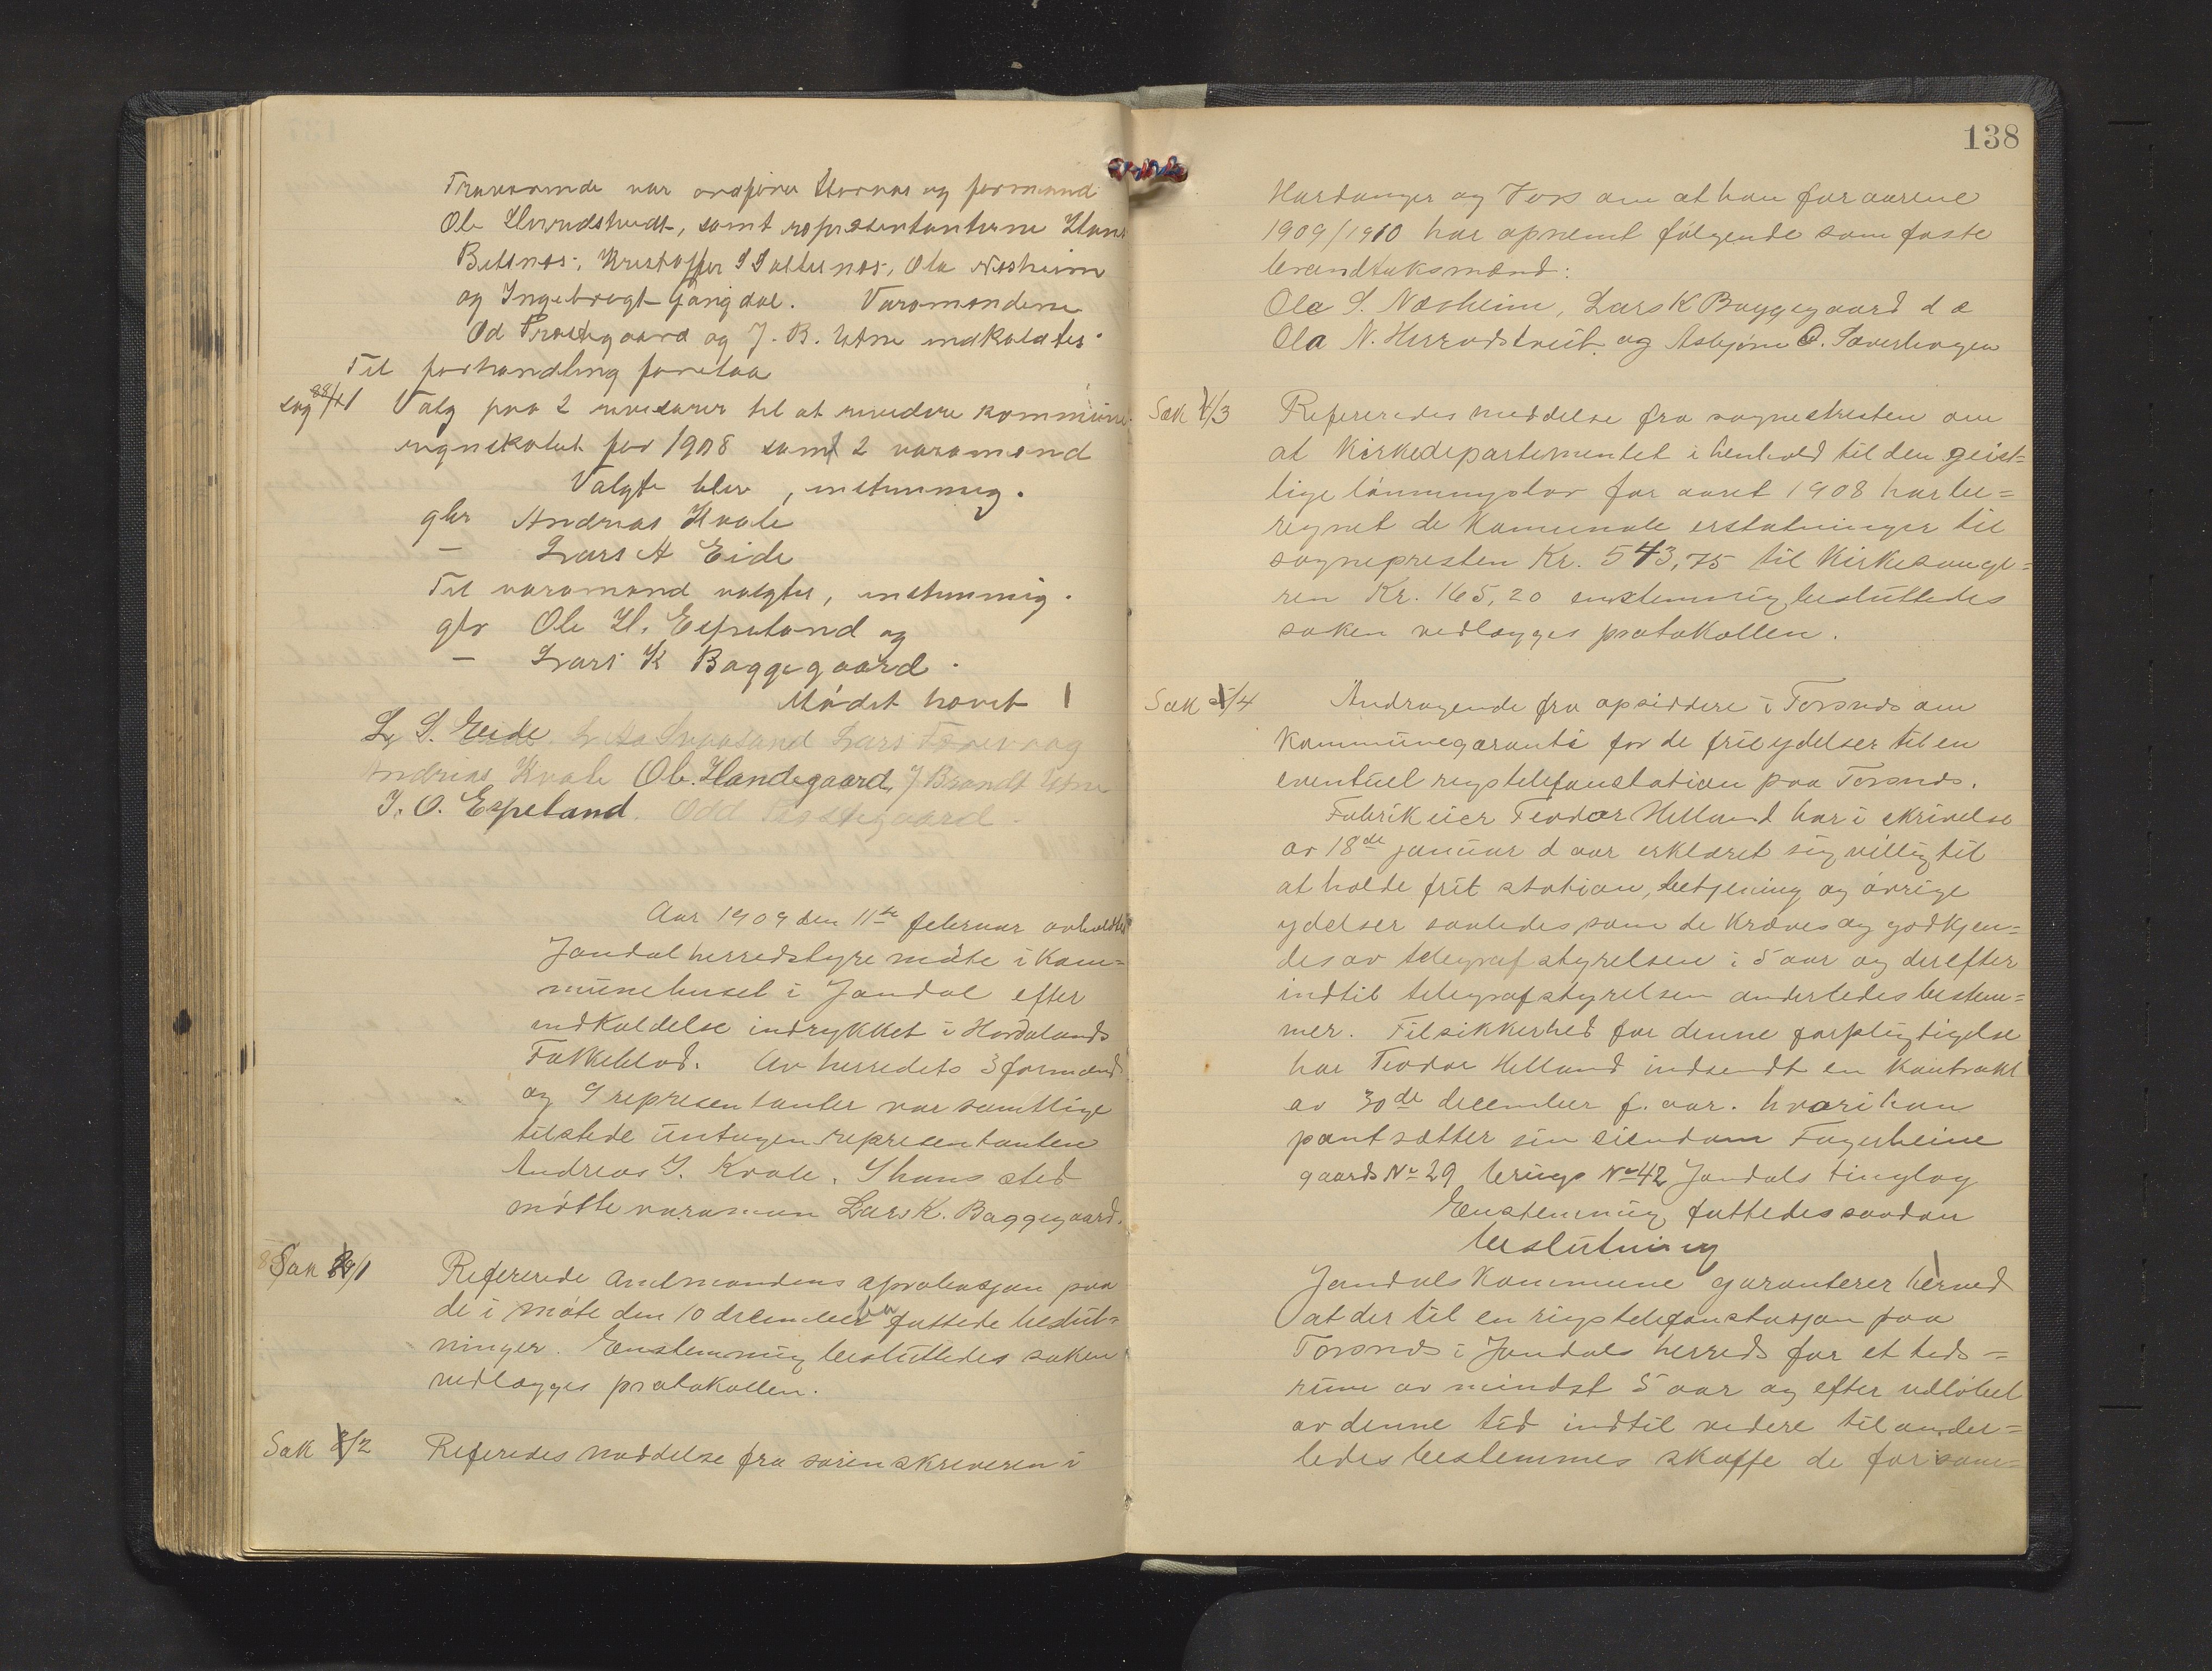 Fraværende var ordfører Uternæs og formænd
Ole Herredstveidt, samt repræsentanterne Hans
Belsnes, Kristoffer S Solesnes, Ola Næsheim
og Ingebregt Gangdal. Varamændene
Od Prestegaard og J. B. Utne indkaldtes.
Til forhandling foretaa
sag 88/11 Valg paa 2 revisorer til at revidere kommune
regnskabet for 1908 samt 2 varamænd
Valgte blev, enstemmig.
gbr Andreas Kvale
— Lars A Eide
Til varamænd valgtes, enstemmig.
gbr Ole H. Espeland og
— Lars K Baggegaard.
Mødet hævet
L. S. Eide. Lars
Andreas Kvale Ole Handegaard, J Brandt Utne
J. O. Espeland. Odd Prestegaard.
Aar 1909 den 11te februar avholdtes
Jondal herredstyre møte i Kom=
munehuset i Jondal efter
indkaldelse indrykket i Hordalands
Folkeblad. Av herredets 3 formænd
og 9 representanter var samtlige
tilstede untagen representanten
Andreas J. Kvale. I hans sted
møtte varaman Lars K. Baggegaard.
Sak 1 Refererede Amtmandens aprobasjon paa
de i møte den 10 december fattede beslut=
ninger. Enstemmig besluttedes saken
vedlægges protokollen.
Sak 2 Referedes meddelse fra sorenskriveren i
138
Hardanger og Voss om at han for aarene
1909/1910 har opnemt følgende som faste
brandtaksmænd:
Ole S. Næsheim, Lars K Baggegaard d æ
Ola N. Herredstveit og Asbjørn O. Saverhagen
Sak 4/3 Refereredes meddelse fra sognepresten om
at Kirkedepartementet i henhold til den geist=
lige lønningslov for aaret 1908 har be=
regnet de Komunale erstatninger til
sognepresten Kr. 543,75 til Kirkesange=
ren Kr. 165,20 enstemmig besluttedes
saken vedlægges protokollen.
Sak 5/4 Andragende fra opsiddere i Torsnes om
Kommunegaranti for de frie ydelser til en
eventuel rigstelefonstation paa Torsnes.
Fabrikeier Teodor Helland har i skrivelse
av 18de januar d aar erklæret sig villig til
at holde frit station, betjening og øvrige
ydelser saaledes som de kræves og godkjen=
des av telegrafstyrelsen i 5 aar og derefter
indtil telegrafstyrelsen anderledes bestem=
mer. Til sikkerhed for denne forpligtigelse
har Teodor Helland indsendt en Kontrakt
av 30de december f. aar. hvori han
pantsætter sin eiendom Fagerheim
gaards No 29 brugs No 42 Jondals tinglag
Enstemmig fattedes saadan
beslutning
Jondals Kommune garanterer herved
at der til en rigstelefonstasjon paa
Torsnes i Jondals herred for et tids=
rum av mindst 5 aar og efter udløbet
av denne tid indtil videre til ander=
ledes bestemmes skaffe de for sam=